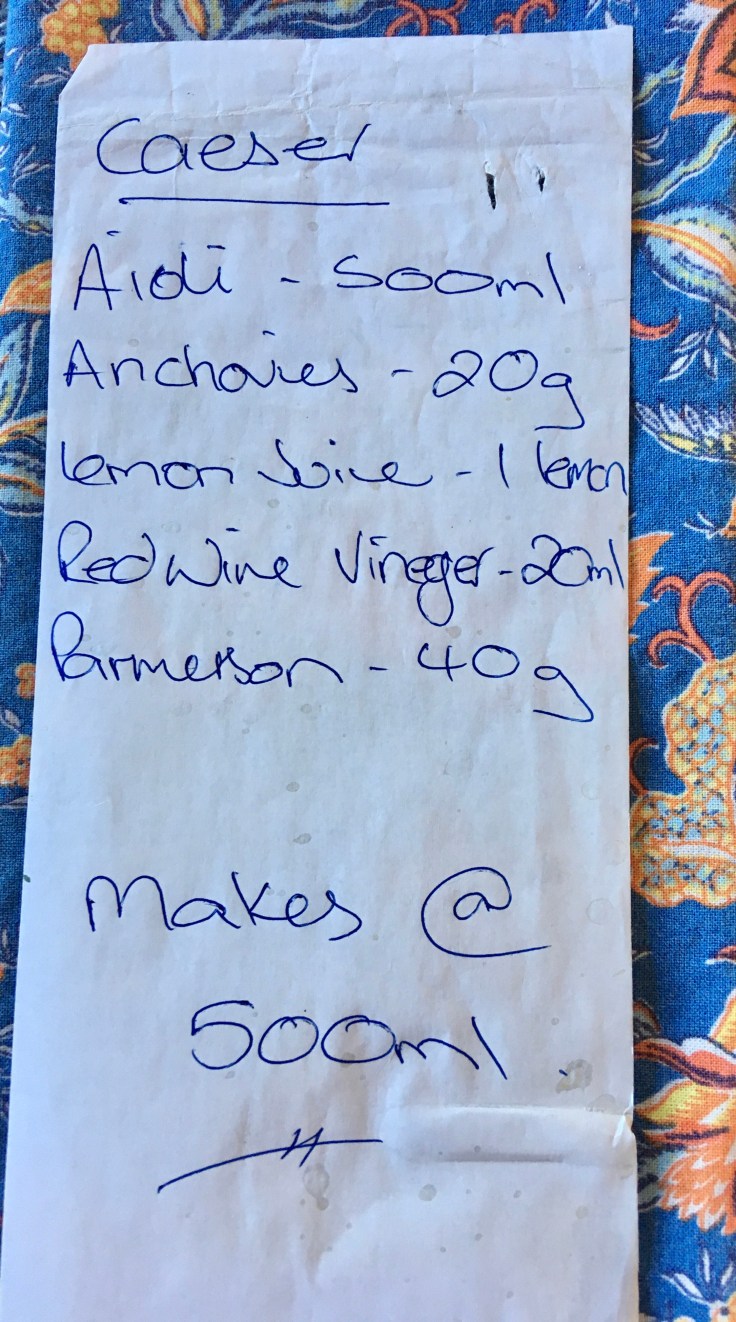 Caeser
Aioli - 500ml
Anchovies - 20g
Lemon Juice - 1 lemon
Red Wine Vineger - 20ml
Parmerson - 40g
Makes @
500ml